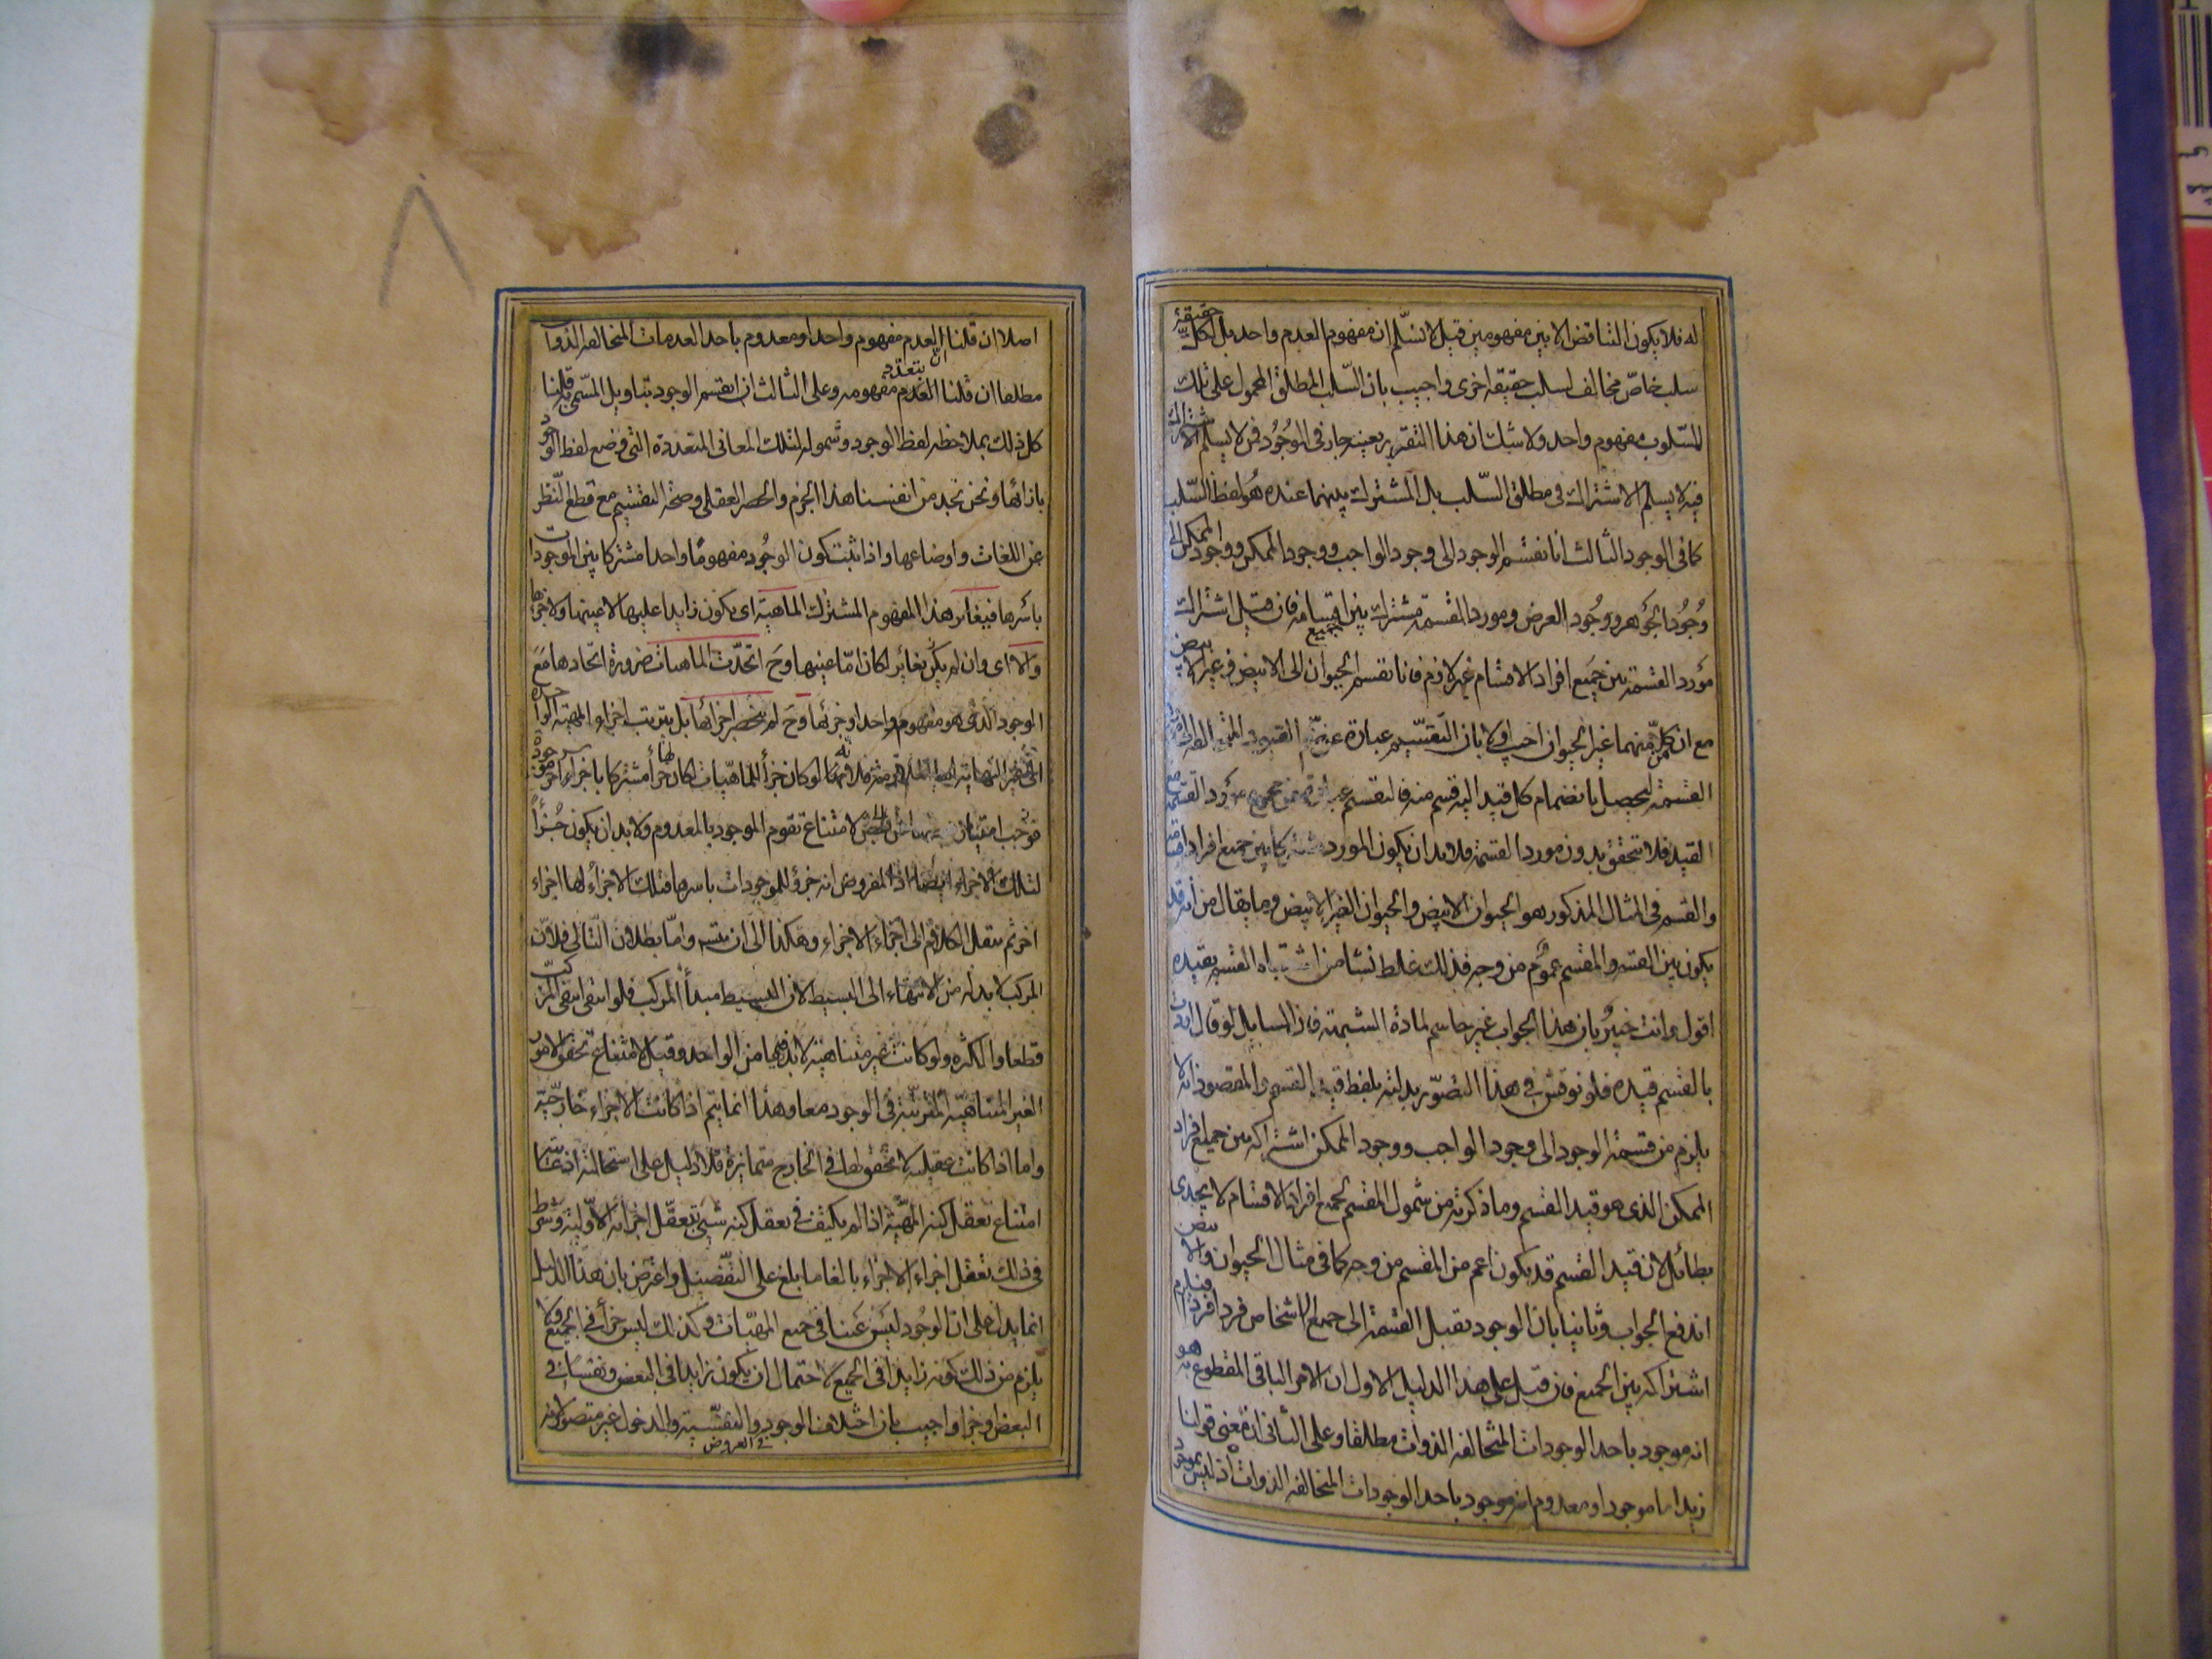 له فلا يكون التناقض الا بين مفهومين قيل لا نسلّم ان مفهوم العدم واحد بل لكل حقيقة
سلب خاصّ مخالف لسلب حقيقة اخرى واجيب بان السّلب المطلق المحمول على تلك
السّلوب مفهوم واحد ولا شك ان هذا التقرير بعينه جار فى الوجود فمن لا يسلم الاشتراك
فيه لا يسلم الاشتراك فى مطلق السّلب بل المشترك بينهما عنده هو لفظ السّلب
كما فى الوجود الثالث انا نقسم الوجود الى وجود الواجب ووجود الممكن ووجود الممكن الى
وجود الجوهر ووجود العرض ومورد القسمة مشترك بين اقسامه فان قيل اشتراك
مورد القسمة بين جميع افراد الاقسام غير لازم فانا نقسم الحيوان الى الابيض وغير الابيض
مع ان كل منهما غير الحيوان اجيب اولا بان التقسيم عبارة عن ضم القيود
القسمة ليحصل بانضمام كل قيد اليه قسم منه فالقسم عبارة عن مجموع مورد القسمة مع
القيد فلا يتحقق بدون مورد القسمة فلا بد ان يكون المورد مشتركا بين جميع افراد اقسامه
والقسم فى المثال المذكور هو الحيوان الابيض والحيوان الغير الابيض وما يقال من انه قد
يكون بين القسم والمقسم عموم من وجه فذلك غلط نشا من اشتباه القسم بقيده
اقول وانت خبير بان هذا الجواب غير حاسم لمادة الشبهة فان السايل لو قال اردت
بالقسم قيده فلو نوقش فى هذا التصوير بدلته بلفظ قيد القسم والمقصود انه لا
يلزم من قسمة الوجود الى وجود الواجب ووجود الممكن اشتراكه بين جميع افراد
الممكن الذى هو قيد القسم وما ذكرته من شمول المقسم لجميع افراد الاقسام لا يجدى
بطائل لان قيد القسم قد يكون اعم من المقسم من وجه كما فى مثال الحيوان والابيض
اندفع الجواب وثانيا بان الوجود يقبل القسمة الى جميع الاشخاص فردا فردا فيلزم
اشتراكه بين الجميع فان قيل على هذا الدليل الاول ان الامر الباقى المقطوع به هو
انه موجود باحد الوجودات المتخالفة الذوات مطلقا وعلى الثانى ان معنى قولنا
زيد اما موجود او معدوم انه موجود باحد الوجودات المتخالفة الذوات او ليس بموجود
اصلا ان قلنا ان العدم مفهوم واحد او معدوم باحد العدمات المتخالفة الذوات
مطلقا ان قلنا بتعدد مفهومه وعلى الثالث ان انقسم الوجود بتاويل المسمّى به قلنا
كل ذلك بملاحظة لفظ الوجود وشموله لتلك المعانى المتعددة التى وضع لفظ الوجود
بازائها ونحن نجد من انفسنا هذا الجزم والحصر العقلى وصحة التقسيم مع قطع النّظر
عن اللغات واوضاعها واذا ثبت كون الوجود مفهوما واحدا مشتركا بين الموجودات
باسرها فيغاير هذا المفهوم المشترك الماهية اى يكون زايدا عليها لا عينها ولا جزءها
والا اى وان لم يكن يغاير لكان امّا عينها وح اتحدت الماهيات ضرورة اتحادها مع
الوجود الذى هو مفهوم واحد او جزئها وح لم ينحصر اجزائها بل يترتب اجزاء المهية الواحدة
الى غير النهاية لو كان جزأ للماهيّات لكان جزأ مشتركا
لامتناع تقوم الموجود بالمعدوم ولا بد ان يكون جُزأ
لتلك الاجزاء ايضا اذ المفروض انه جزؤ للموجودات باسرها فتلك الاجزاء لها اجزاء
اخر ثم ننقل الكلام الى اجزاء الاجزاء وهكذا الى ان يتسه وامّا بطلان التالى فلان
المركب لا بد له من الانتهاء الى البسيط لان البسيط مبدأ المركب فلو انتفى انتفى المركب
قطعا والكثرة ولو كانت غير متناهية لا بد فيها من الواحد وقيل لامتناع تحقق الامور
الغير المتناهية المترتبة فى الوجود معا وهذا انما يتم اذا كانت الاجزاء خارجية
واما اذا كانت عقلية لا تحقق لها فى الخارج متمايزة فلا دليل على استحالته اذ غايته
امتناع تعقل كنه المهيّة اذا لم يكتف فى تعقل كنه شيئ بتعقل اجزائه الاولية وشرط
فى ذلك تعقل اجزاء الاجزاء بالغا ما بلغ على التفصيل واعترض بان هذا الدليل
انما يدل على ان الوجود ليس عينا فى جميع المهيّات وكذلك ليس جزأ فى الجميع ولا
يلزم من ذلك كونه زايدا فى الجميع لاحتمال ان يكون زايدا فى البعض ونفسا فى
البعض او جزا واجيب بان اختلاف الوجود فى العروض والنفسية والدخول غير متصور لانه